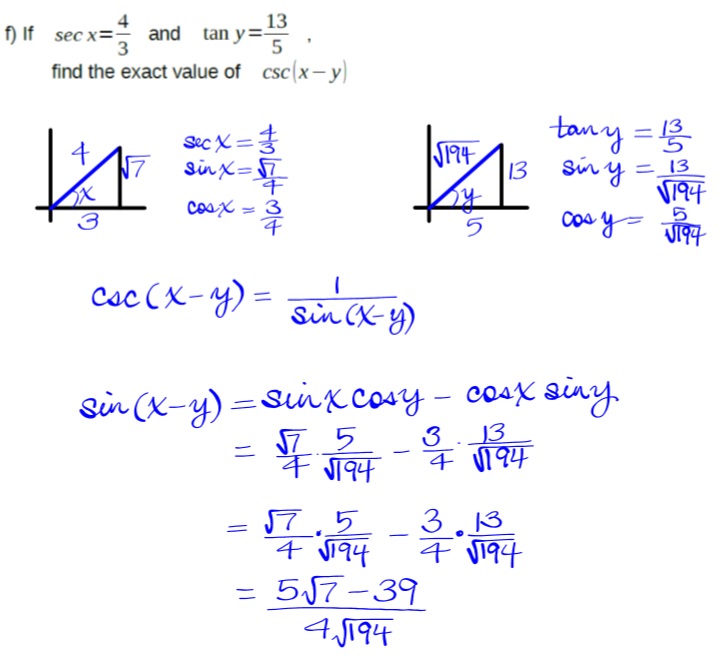 f) If sec x = 4/3 and tan y = 13/5 ,
find the exact value of csc(x − y)
4 √7 x 3
sec x = 4/3
sin x = √7/4
cos x = 3/4
√194 13 y 5
tan y = 13/5
sin y = 13/√194
cos y = 5/√194
csc(x−y) = 1/sin(x−y)
sin(x−y) = sin x cos y − cos x sin y
= √7/4 · 5/√194 − 3/4 · 13/√194
= √7/4 · 5/√194 − 3/4 · 13/√194
= (5√7 − 39)/(4√194)